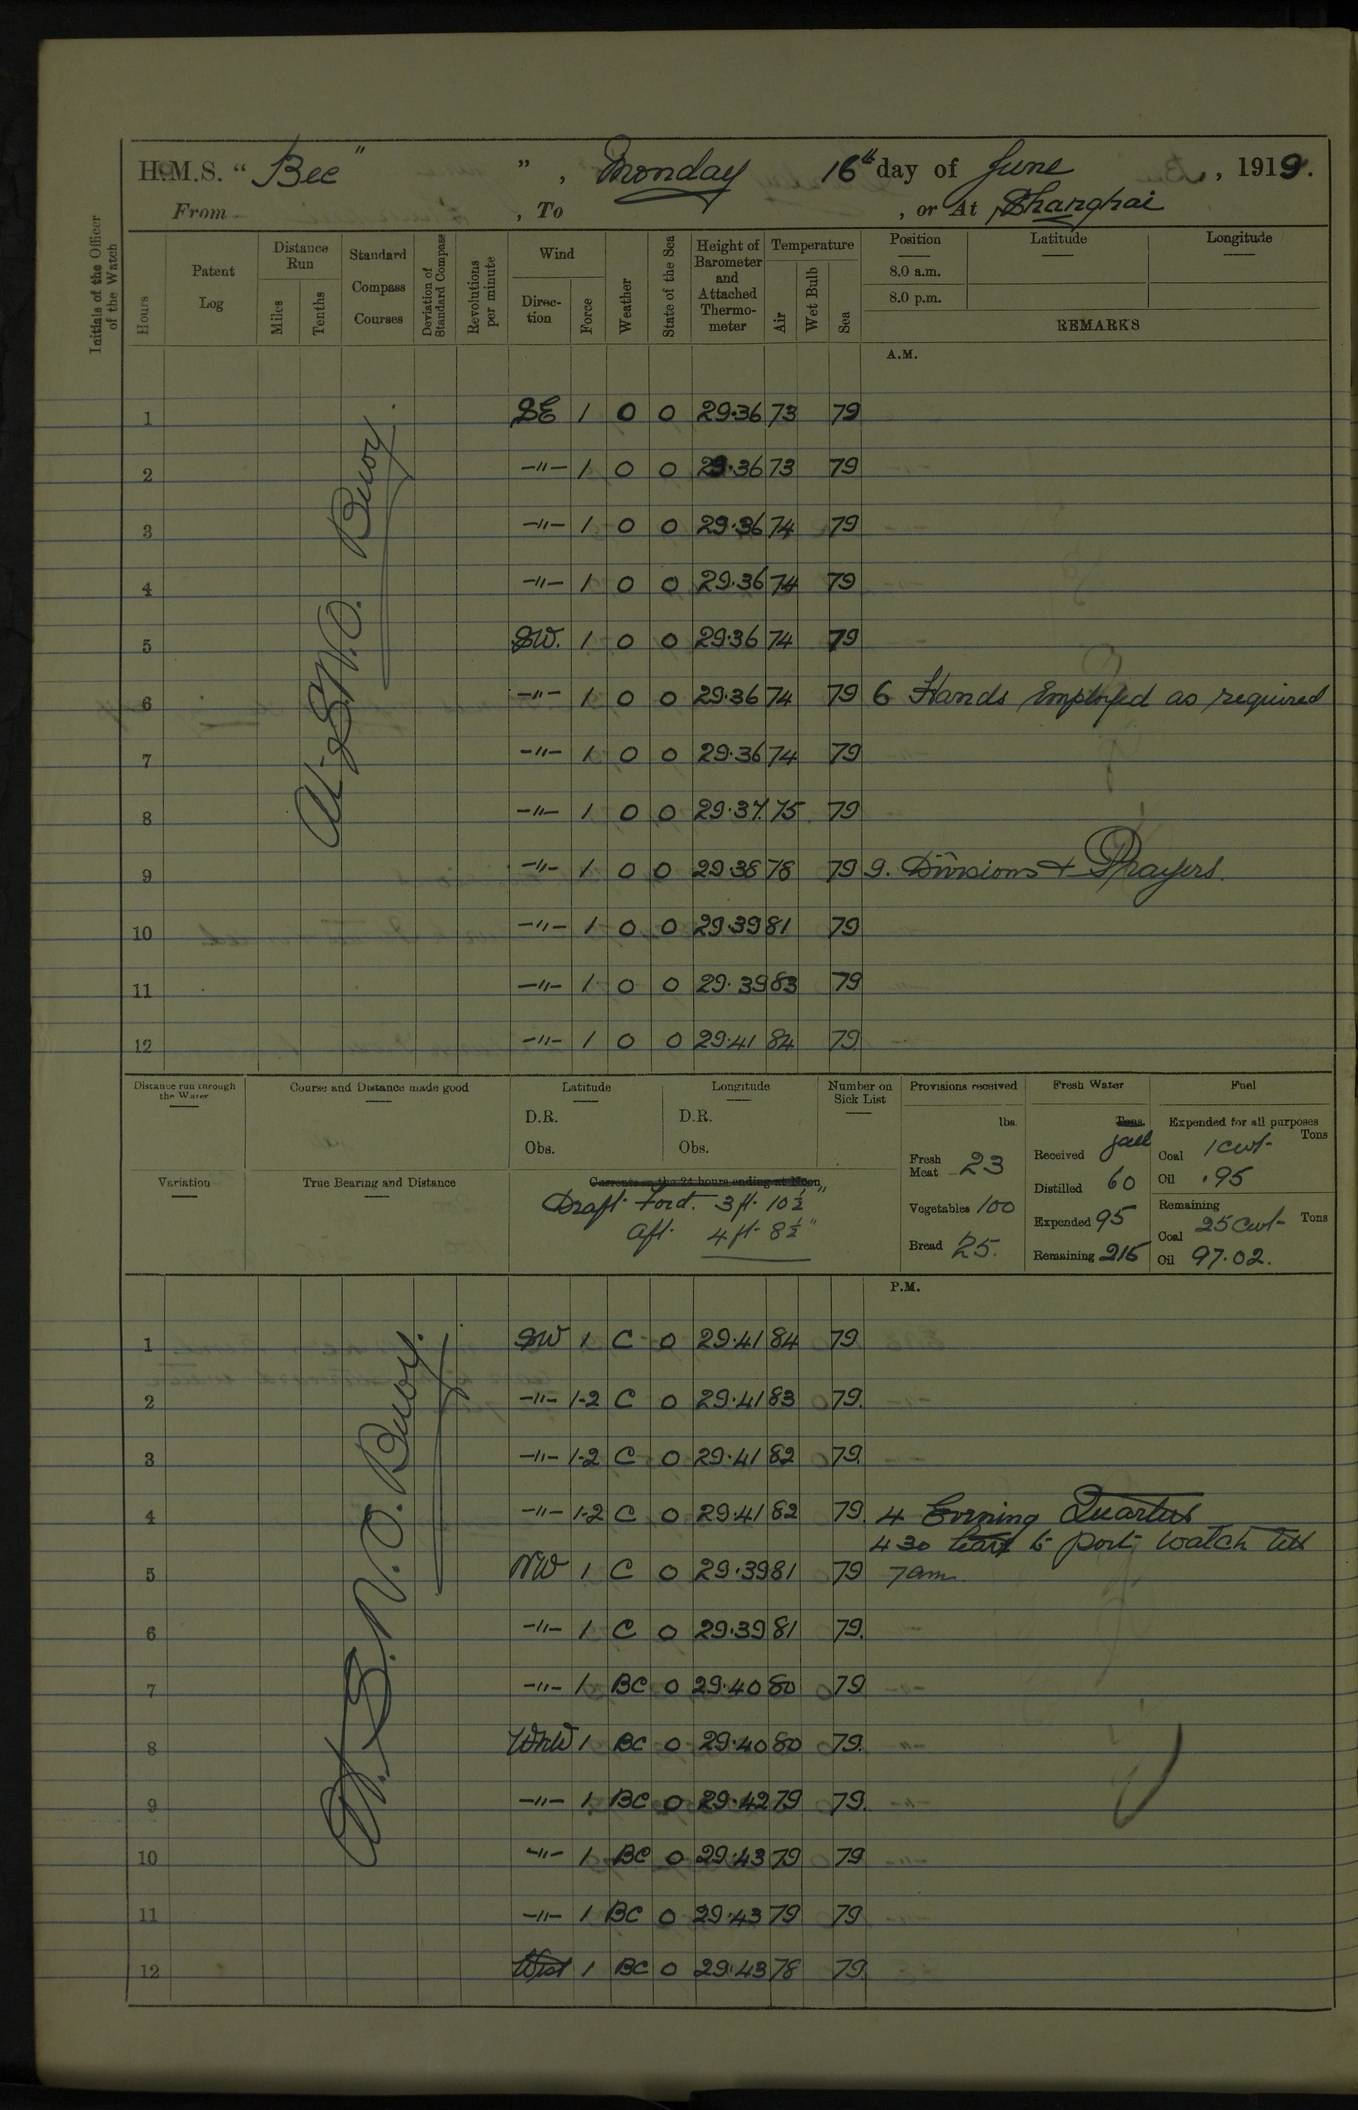 H.M.S. “ Bee ” ” , Monday 16th day of June , 1919.
From , To , or At Shanghai
Initials of the Officer of the Watch
Hours
Patent Log
Distance Run
Miles
Tenths
Standard Compass Courses
Deviation of Standard Compass
Revolutions per minute
Wind
Direc-tion
Force
Weather
State of the Sea
Height of Barometer and Attached Thermo-meter
Temperature
Air
Wet Bulb
Sea
Position Latitude Longitude
8.0 a.m.
8.0 p.m.
REMARKS
A.M.
At S.N.O. Buoy.
1 SE 1 O O 29.36 73 79
2 -"- 1 O O 29.36 73 79
3 -"- 1 O O 29.36 74 79
4 -"- 1 O O 29.36 74 79
5 SW. 1 O O 29.36 74 79
6 -"- 1 O O 29.36 74 79 6 Hands Employed as required
7 -"- 1 O O 29.36 74 79
8 -"- 1 O O 29.37 75 79
9 -"- 1 O O 29.38 78 79 9. Divisions + Prayers.
10 -"- 1 O O 29.39 81 79
11 -"- 1 O O 29.39 83 79
12 -"- 1 O O 29.41 84 79
Distance run through the Water
Course and Distance made good
Latitude
D.R.
Obs.
Longitude
D.R.
Obs.
Number on Sick List
Variation
True Bearing and Distance
Currents in the 24 hours ending at Noon
Draft. Ford. 3 ft. 10½"
Aft. 4 ft. 8½"
Provisions received
lbs.
Fresh Meat 23
Vegetables 100
Bread 25.
Fresh Water
Tons
Received gall
Distilled 60
Expended 95
Remaining 215
Fuel
Expended for all purposes
Tons
Coal 1 cwt
Oil .95
Remaining
Tons
Coal 25 cwt
Oil 97.02.
P.M.
At S.N.O. Buoy.
1 SW 1 C O 29.41 84 79
2 -"- 1-2 C O 29.41 83 79.
3 -"- 1-2 C O 29.41 82 79.
4 -"- 1-2 C O 29.41 82 79. 4 Evening Quarters
4 30 leave to port watch till
5 NW 1 C O 29.39 81 79 7am.
6 -"- 1 C O 29.39 81 79.
7 -"- 1 BC O 29.40 80 79
8 WNW 1 BC O 29.40 80 79.
9 -"- 1 BC O 29.42 79 79.
10 -"- 1 BC O 29.43 79 79
11 -"- 1 BC O 29.43 79 79
12 West 1 BC O 29.43 78 79